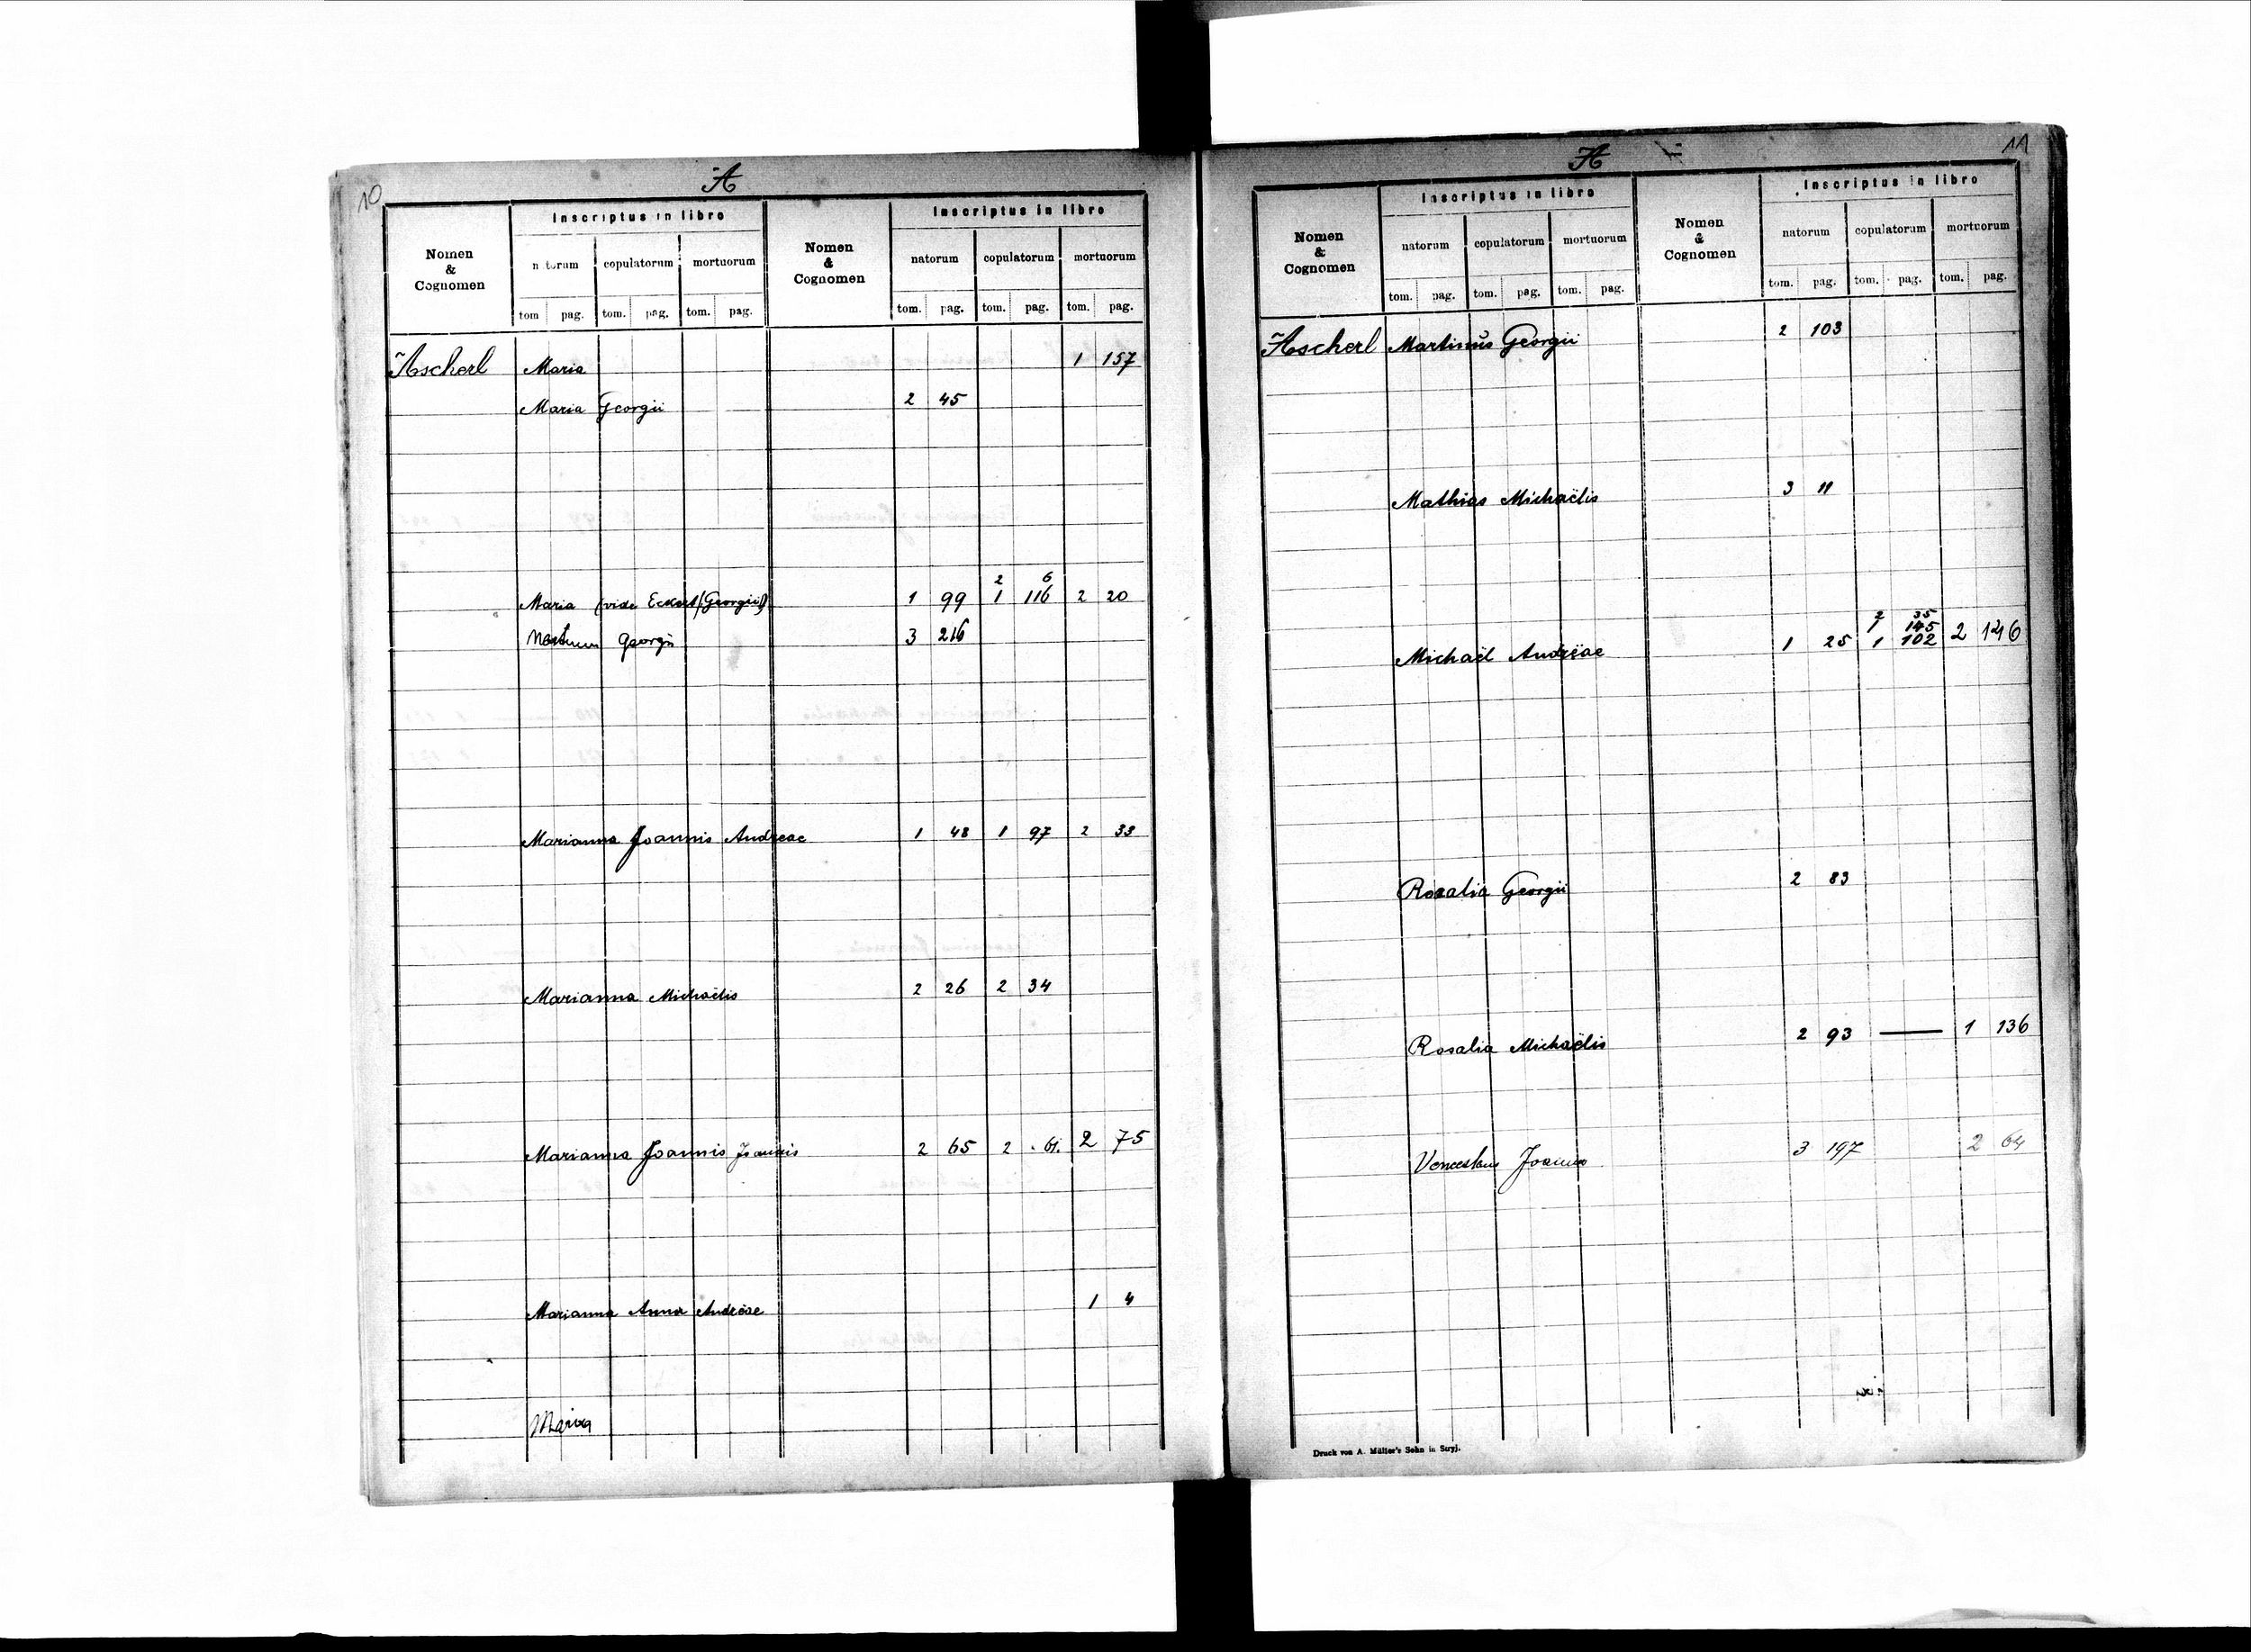 10
A
Nomen & Cognomen Inscriptus in libro Nomen & Cognomen Inscriptus in libro
natorum copulatorum mortuorum natorum copulatorum mortuorum
tom pag. tom. pag. tom. pag. tom. pag. tom. pag. tom. pag.
Ascherl Maria 1 157
Maria Georgii 2 45
2 6
Maria (vide Eckert (Georgii)) 1 99 1 116 2 20
Georgii 3 216
Marianna Joannis Andreae 1 48 1 97 2 33
Marianna Michaëlis 2 26 2 34
Marianna Joannis Joannis 2 65 2 61. 2 75
Marianna Anna Andreae 1 4
Maria
11
A
Nomen & Cognomen Inscriptus in libro Nomen & Cognomen Inscriptus in libro
natorum copulatorum mortuorum natorum copulatorum mortuorum
tom. pag. tom. pag. tom. pag. tom. pag. tom. pag. tom. pag.
Ascherl Martinus Georgii 2 103
Mathias Michaëlis 3 11
2 35
1 145
Michaël Andreae 1 25 1 102 2 146
Rosalia Georgii 2 83
Rosalia Michaëlis 2 93 — 1 136
Venceslaus Joannis 3 197 2 64
Druck von A. Müller's Sohn in Stryj.